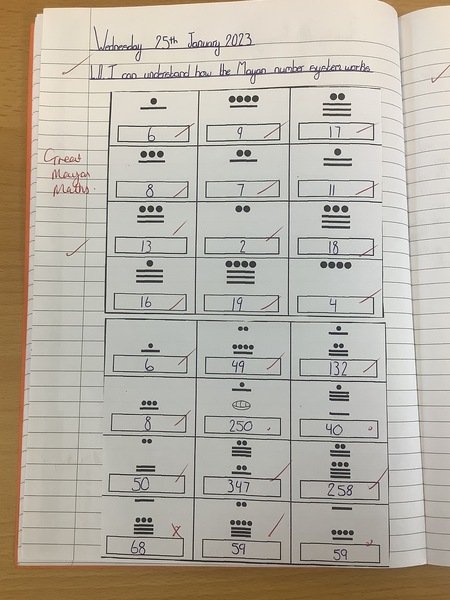 Wednesday 25th January 2023
I can understand how the Mayan number system works
Great
Mayan
Maths.
6 9 17
8 7 11
13 2 18
16 19 4
6 49 132
8 250 40
50 347 258
68 59 59